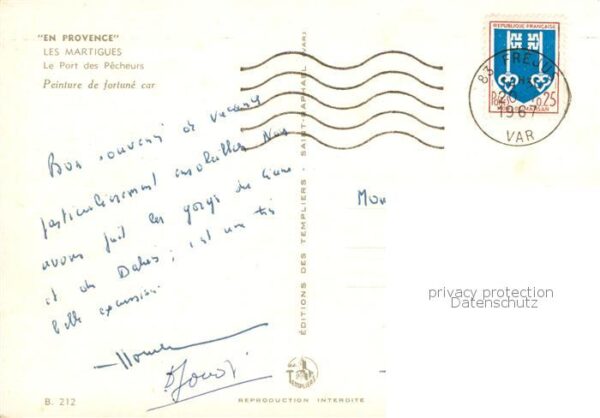 "EN PROVENCE"
LES MARTIGUES
Le Port des Pêcheurs
Peinture de fortuné car
Bon souvenir de vacances
particulièrement ensoleillées Nous
avons fait les gorges du
et du ; c'est une très
belle excursion
B. 212
ÉDITIONS DES TEMPLIERS - SAINT-RAPHAËL (VAR)
TEMPLIERS
REPRODUCTION INTERDITE
REPUBLIQUE FRANÇAISE
POSTES
0,25
MONT-DE-MARSAN
83 FRÉJUS
1967
VAR
privacy protection
Datenschutz